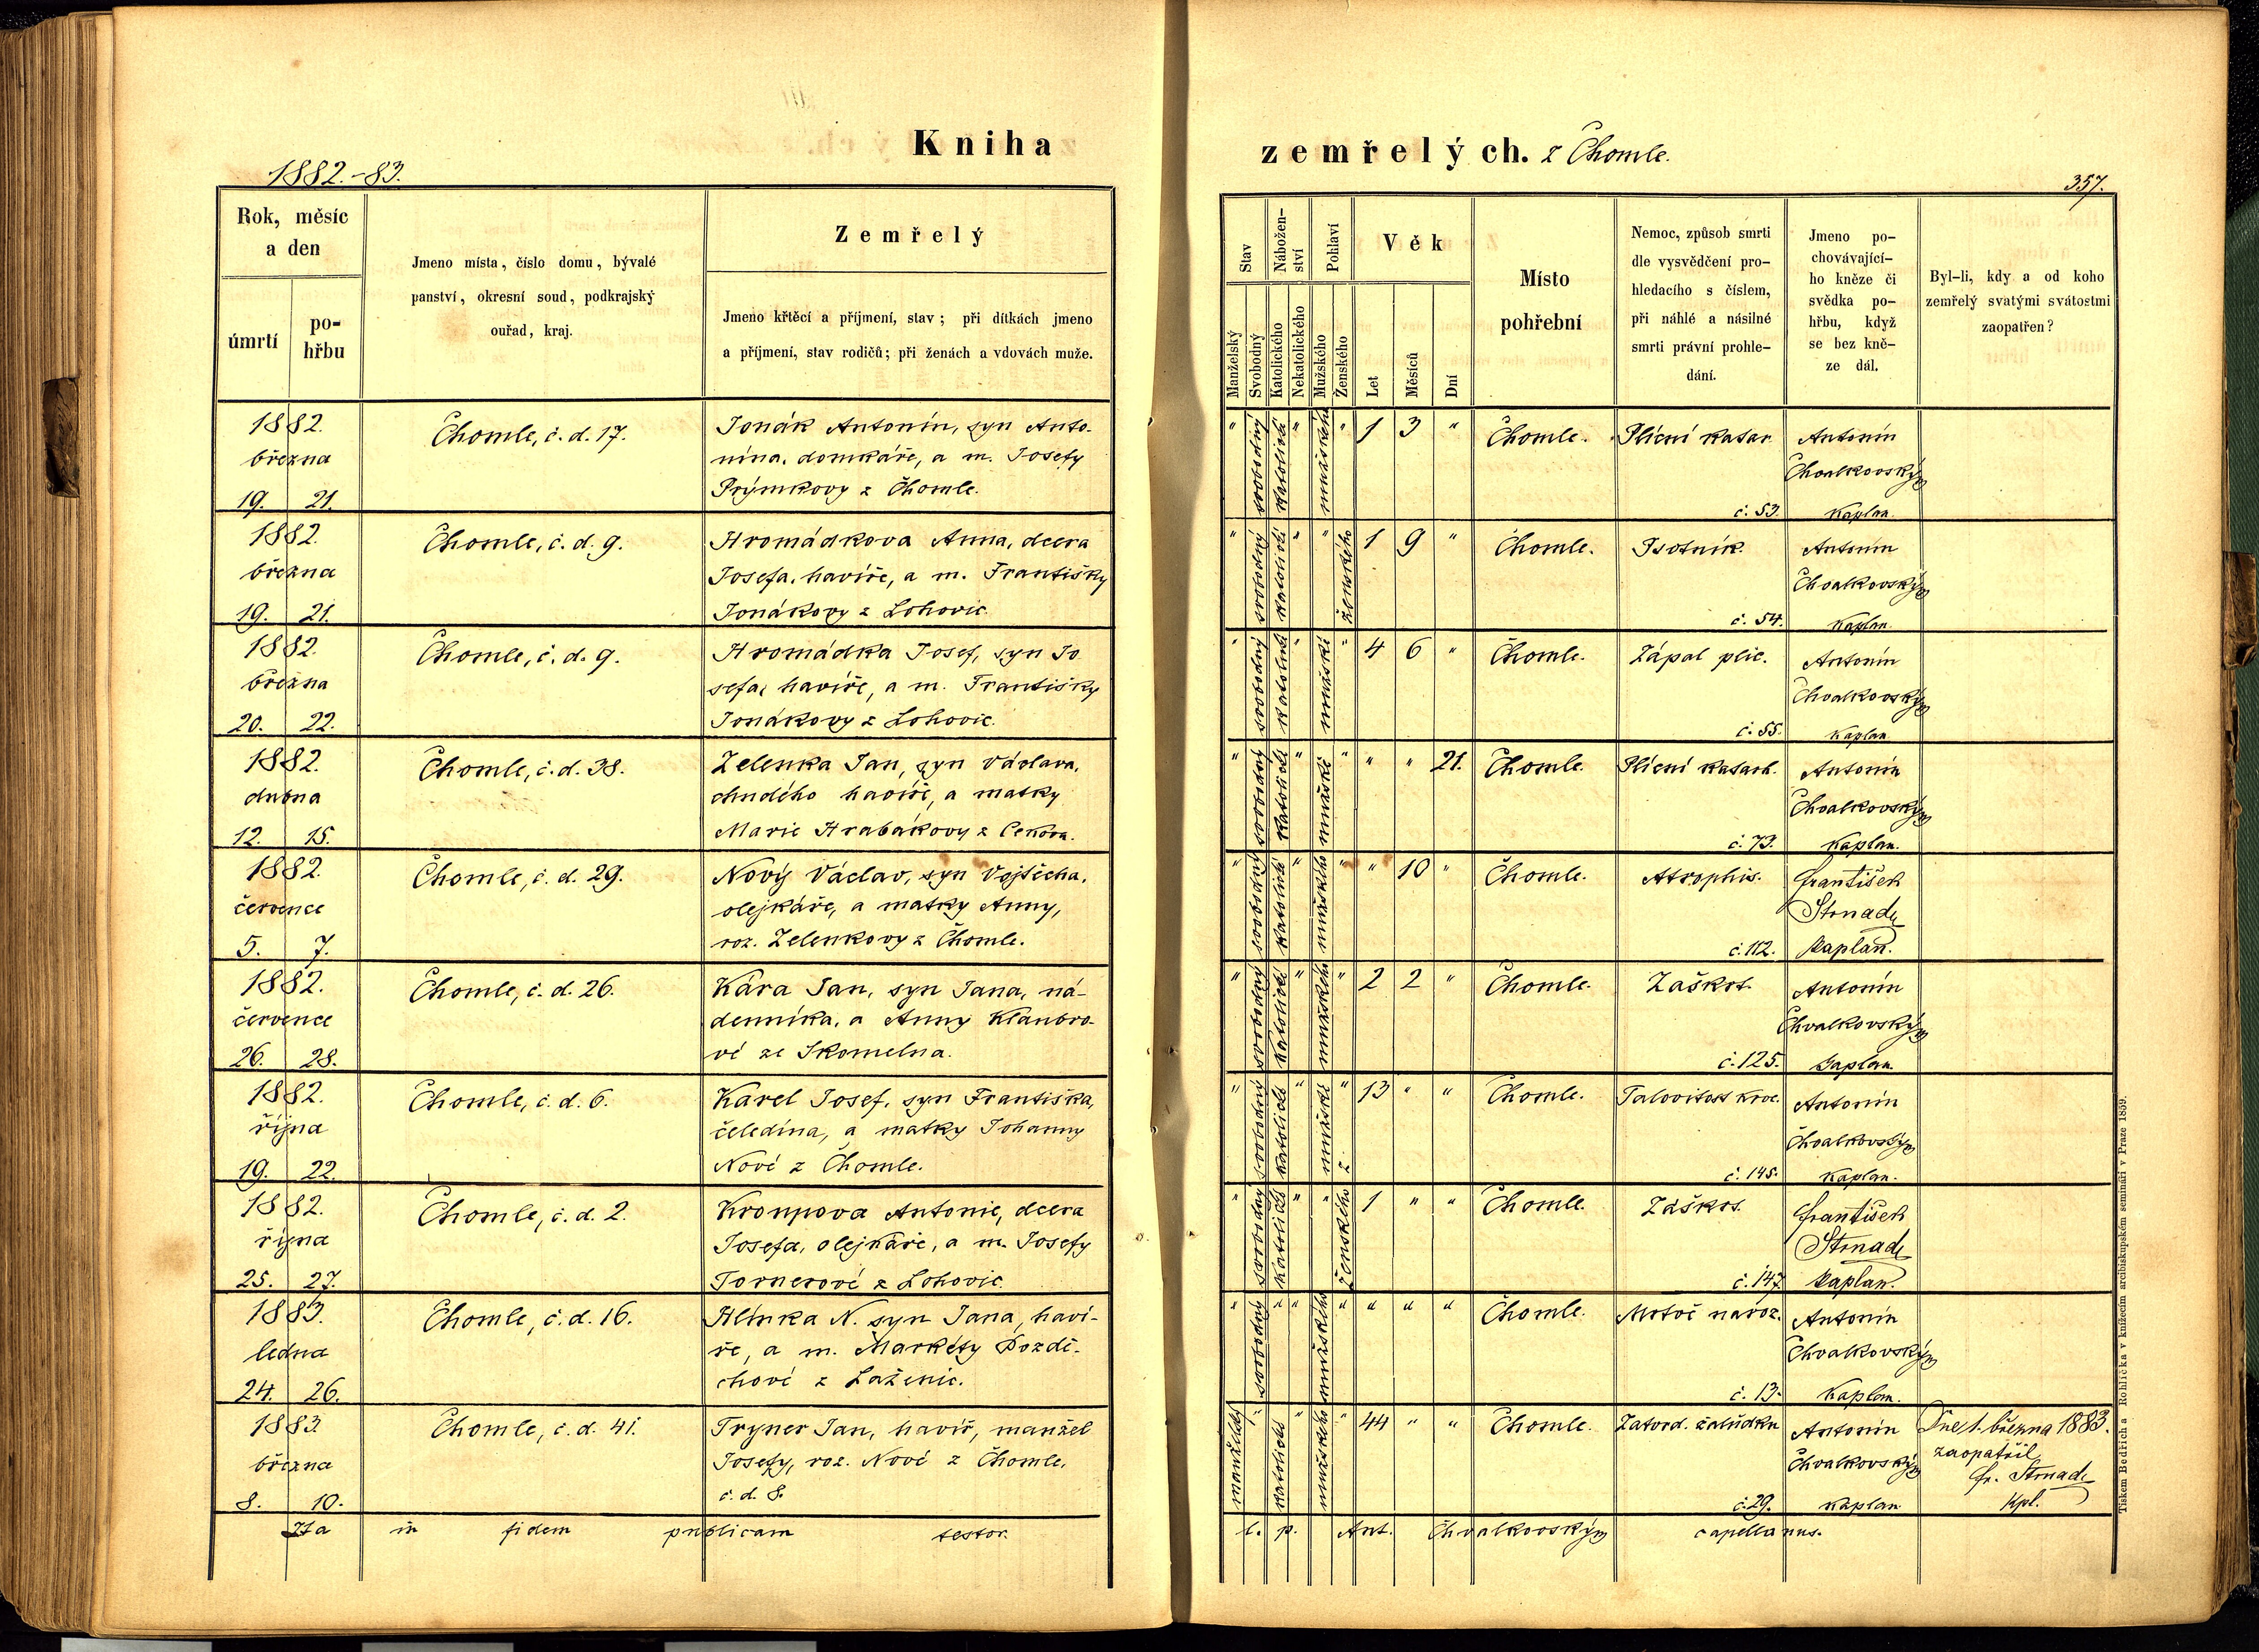 Kniha zemřelých. z Chomle.
1882.-83.
357.
Rok, měsíc
a den
úmrtí
po-
hřbu
Jmeno místa, číslo domu, bývalé
panství, okresní soud, podkrajský
ouřad, kraj.
Zemřelý
Jmeno křtěcí a příjmení, stav; při dítkách jmeno
a příjmení, stav rodičů; při ženách a vdovách muže.
Stav
Manželský
Svobodný
Nábožen-
ství
Katolického
Nekatolického
Pohlaví
Mužského
Ženského
Věk
Let
Měsíců
Dní
Místo
pohřební
Nemoc, způsob smrti
dle vysvědčení pro-
hledacího s číslem,
při náhlé a násilné
smrti právní prohle-
dání.
Jmeno po-
chovávající-
ho kněze či
svědka po-
hřbu, když
se bez kně-
ze dál.
Byl-li, kdy a od koho
zemřelý svatými svátostmi
zaopatřen?
1882.
března
19. 21.
Chomle, č. d. 17.
Jonák Antonín, syn Anto-
nína, domkáře, a m. Josefy
Prýmkovy z Chomle.
" svobodný katolické " mužského " 1 3 "
Chomle.
Plicní katar.
č. 53.
Antonín
Chvalkovský
kaplan.
1882.
března
19. 21.
Chomle, č. d. 9.
Hromádkova Anna, dcera
Josefa, havíře, a m. Františky
Jonákovy z Lohovic.
" svobodný katolické " " ženského 1 9 "
Chomle.
Psotník.
č. 54.
Antonín
Chvalkovský
kaplan.
1882.
března
20. 22.
Chomle, č. d. 9.
Hromádka Josef, syn Jo
sefa, havíře, a m. Františky
Jonákovy z Lohovic.
" svobodný katolické " mužské " 4 6 "
Chomle.
Zápal plic.
č. 55.
Antonín
Chvalkovský
kaplan.
1882.
dubna
12. 15.
Chomle, č. d. 38.
Zelenka Jan, syn Václava,
chudého havíře, a matky
Marie Hrabákovy z Cekova.
" svobodný katolické " mužské " " " 21.
Chomle.
Plicní katarh.
č. 73.
Antonín
Chvalkovský
kaplan.
1882.
července
5. 7.
Chomle, č. d. 29.
Nový Václav, syn Vojtěcha,
olejkáře, a matky Anny,
roz. Zelenkovy z Chomle.
" svobodný katolické " mužského " " 10 "
Chomle.
Atrophis.
č. 112.
František
Strnad
kaplan.
1882.
července
26. 28.
Chomle, č. d. 26.
Kára Jan, syn Jana, ná-
denníka, a Anny Klaubro-
vé ze Skomelna.
" svobodný katolické " mužského " 2 2 "
Chomle.
Záškrt.
č. 125.
Antonín
Chvalkovský
kaplan.
1882.
října
19. 22.
Chomle, č. d. 6.
Karel Josef, syn Františka,
čeledína, a matky Johanny
Nové z Chomle.
" svobodný katolické " mužské " 13 " "
Chomle.
Jalovitost krve.
č. 145.
Antonín
Chvalkovský
kaplan.
1882.
října
25. 27.
Chomle, č. d. 2.
Kroupova Antonie, dcera
Josefa, olejkáře, a m. Josefy
Tornerové z Lohovic.
" svobodný katolické " " ženského 1 " "
Chomle.
Záškrt.
č. 147.
František
Strnad
kaplan.
1883.
ledna
24. 26.
Chomle, č. d. 16.
Hlinka N. syn Jana, haví-
ře, a m. Markéty Pozdě-
chové z Laženic.
" svobodný " " mužského " " " "
Chomle.
Mrtvě naroz.
č. 13.
Antonín
Chvalkovský
kaplan.
1883
března
8. 10.
Chomle, č. d. 41.
Tryner Jan, havíř, manžel
Josefy, roz. Nové z Chomle,
č. d. 8.
manželský " katolické " mužského " 44 " "
Chomle.
Zatvrd. žalúdku
č. 29.
Antonín
Chvalkovský
kaplan
Dne 1. března 1883.
zaopatřil
Fr. Strnad
kpl.
Ita in fidem publicam testor.
t. p. Ant. Chvalkovský capellanus.
Tiskem Bedřicha Rohlíčka v knížecím arcibiskupském semináři v Praze 1859.